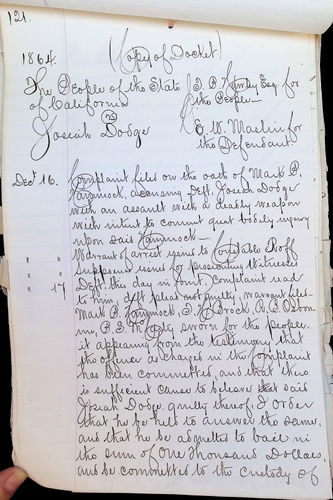 121.
(Copy of Docket)
1864.
The People of the State
of California
vs
Josiah Dodge
Esq for
the People—
E. W. Maslin for
the Defendant
Dec 16. Complaint filed on the oath of Mark P.
Hammock, accusing Deft. Josiah Dodge
with an assault with a deadly weapon
with intent to commit great bodily injury
upon said Hammock—
" " Warrant of arrest issued to Constable Roff
" " Suppoena issued for prosecuting witnesses
" 17 Deft. this day in court, complaint read
to him, deft. pleads not guilty, warrant filed—
Mark P. Hammock, Brock,
sworn for the people,
it appearing from the testimony that
the offence as charged in the complaint
has been committed, and that there
is sufficient cause to believe that said
Josiah Dodge guilty thereof. I order
that he be held to answer the same,
and that he be admitted to bail in
the sum of One Thousand Dollars
and be committed to the custody of